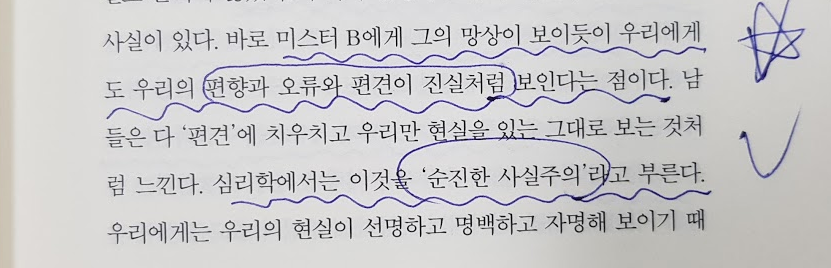 사실이 있다. 바로 미스터 B에게 그의 망상이 보이듯이 우리에게
도 우리의 편향과 오류와 편견이 진실처럼 보인다는 점이다. 남
들은 다 ‘편견’에 치우치고 우리만 현실을 있는 그대로 보는 것처
럼 느낀다. 심리학에서는 이것을 ‘순진한 사실주의’라고 부른다.
우리에게는 우리의 현실이 선명하고 명백하고 자명해 보이기 때